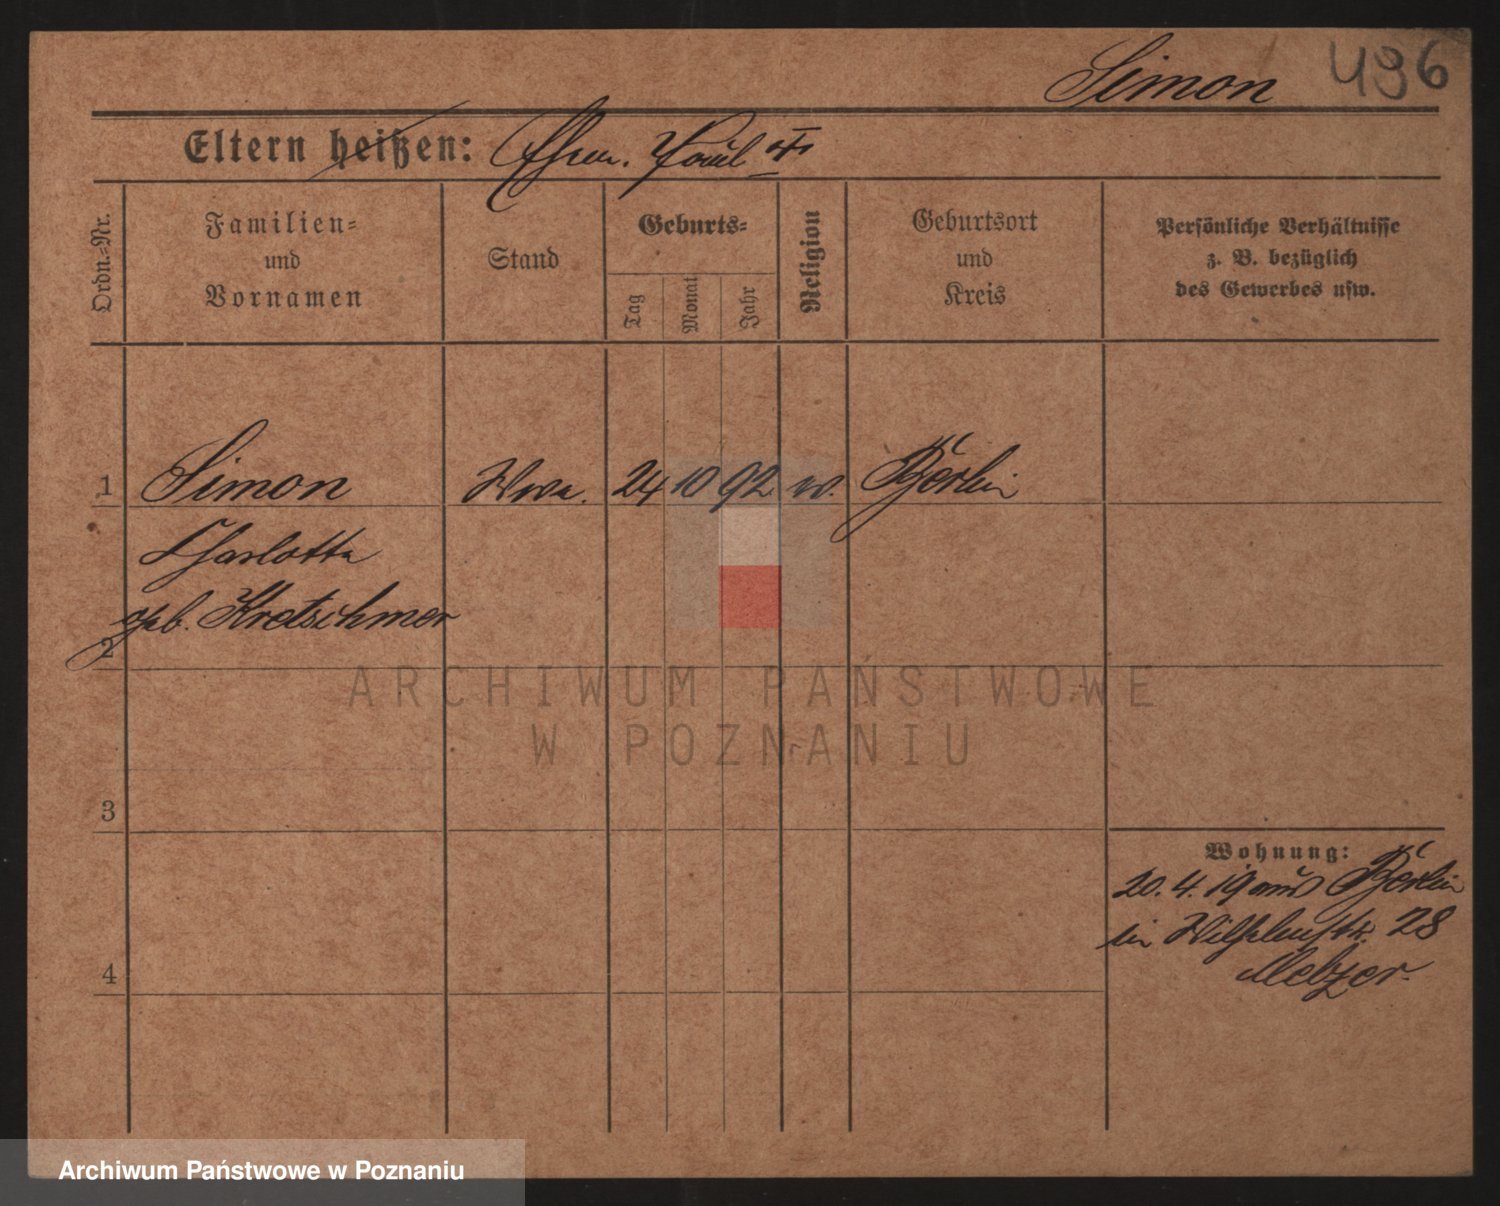 Simon 496
Eltern heißen: Ehem. Paul
Ordn.-Nr.
Familien- und Vornamen
Stand
Geburts-
Tag
Monat
Jahr
Religion
Geburtsort und Kreis
Persönliche Verhältnisse
z. B. bezüglich
des Gewerbes usw.
1 Simon Wwe. 24 10 92 ev. Berlin
Charlotte
geb. Kretschmer
2
ARCHIWUM PAŃSTWOWE
W POZNANIU
3
Wohnung:
20. 4. 19 aus Berlin
in Wilhelmstr. 28
Melzer.
4
Archiwum Państwowe w Poznaniu